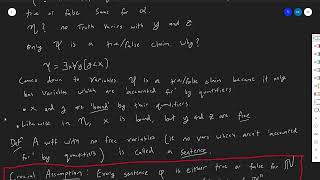 true or false. Same for α.
η? no Truth varies with y and z
Only ψ is a true/false claim. Why?
ψ = ∃x∀y(y<x)
Comes down to variables. ψ is a true/false claim because it only
has variables which are 'accounted for' by quantifiers
• x and y are 'bound' by their quantifiers.
• Likewise in η, x is bound, but y and z are free.
Def A wff with no free variables (ie no vars which aren't 'accounted
for' by quantifiers) is called a sentence.
Crucial Assumption: Every sentence φ is either true or false for ℕ